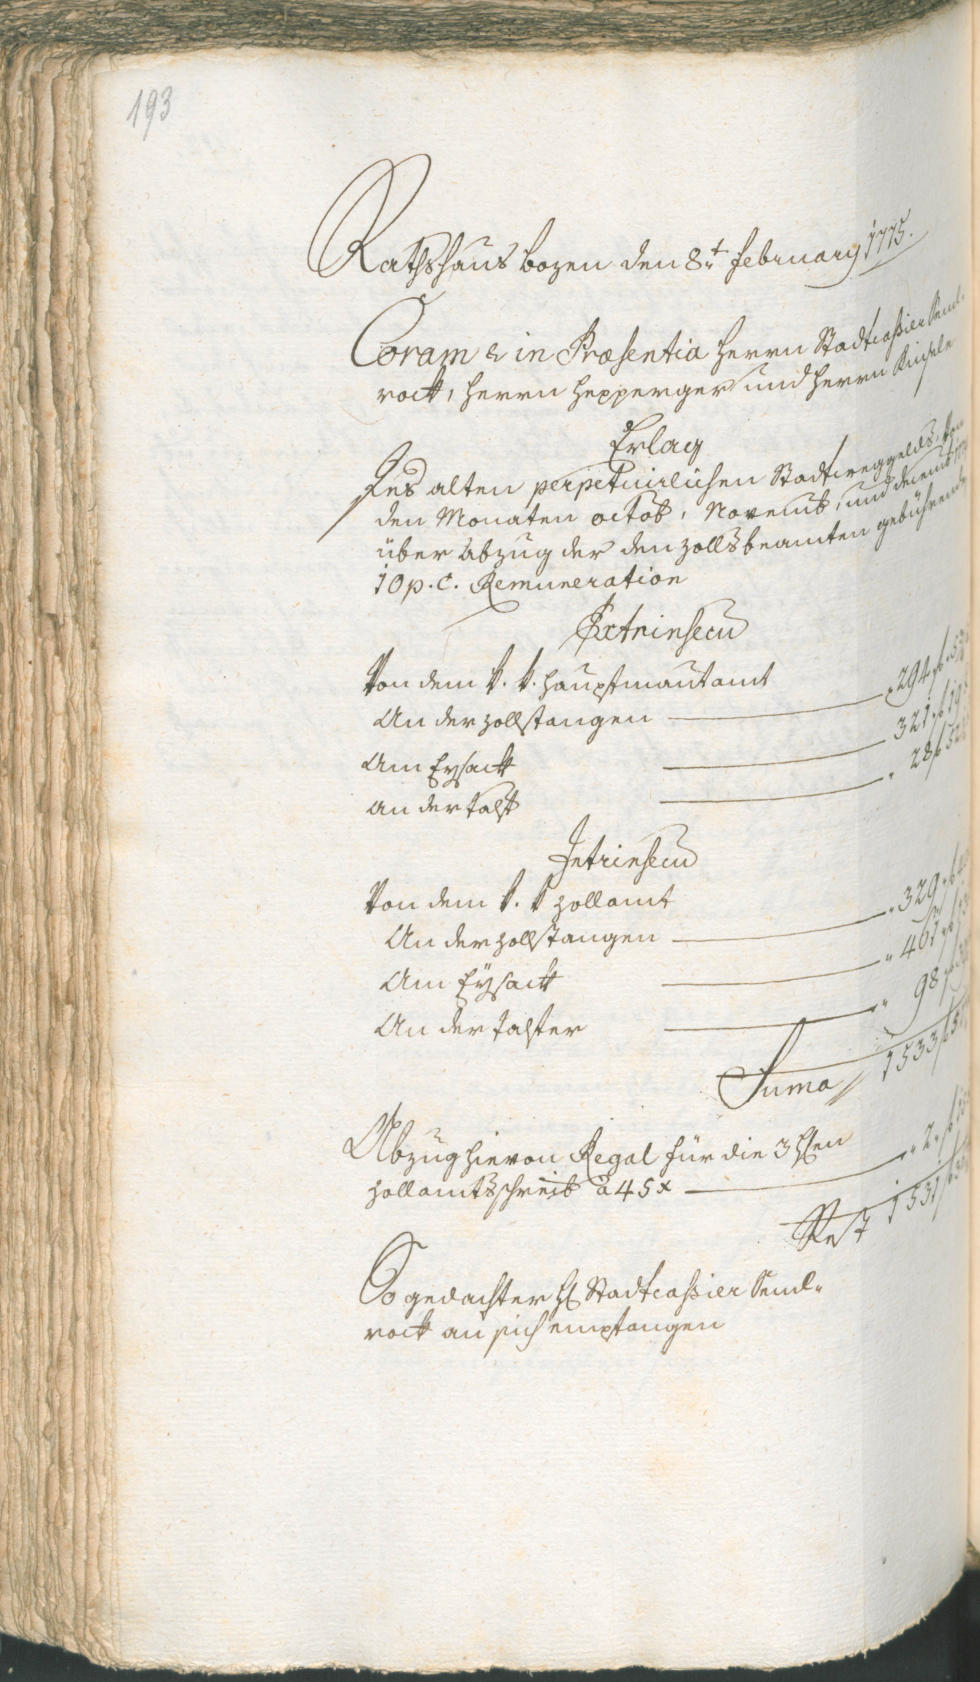 193
Rathshaus bozen den 8.t february 1775.
Coram & in Præsentia herrn Stadtcaßier Send-
rock, herrn hepperger und herrn Kinsele
Erlag
Des alten perpetuirlichen Stadtweggelds, von
den Monaten octob, Novemb, und decemb
über abzug der den zollsbeamten gebührende
10 p. C. Remuneration
Extrinsecu
Von dem k. k. hauptmautamt
An der zollstangen „ 294 f
Am Eysack 321 f 19
an der talf „ 28 f 32
Intrinsecu
Von dem k. k zollamt
An der zollstangen „ 329 f
Am Eÿsack „ 461 f
An der talfer „ 98 f
Suma 1533 f
Abzug hievon Regal für die 3 hen
zollamtsschreib à 45 x „ 2 f
Rest 1531 f
So gedachter H Stadtcaßier Send-
rock an sich empfangen